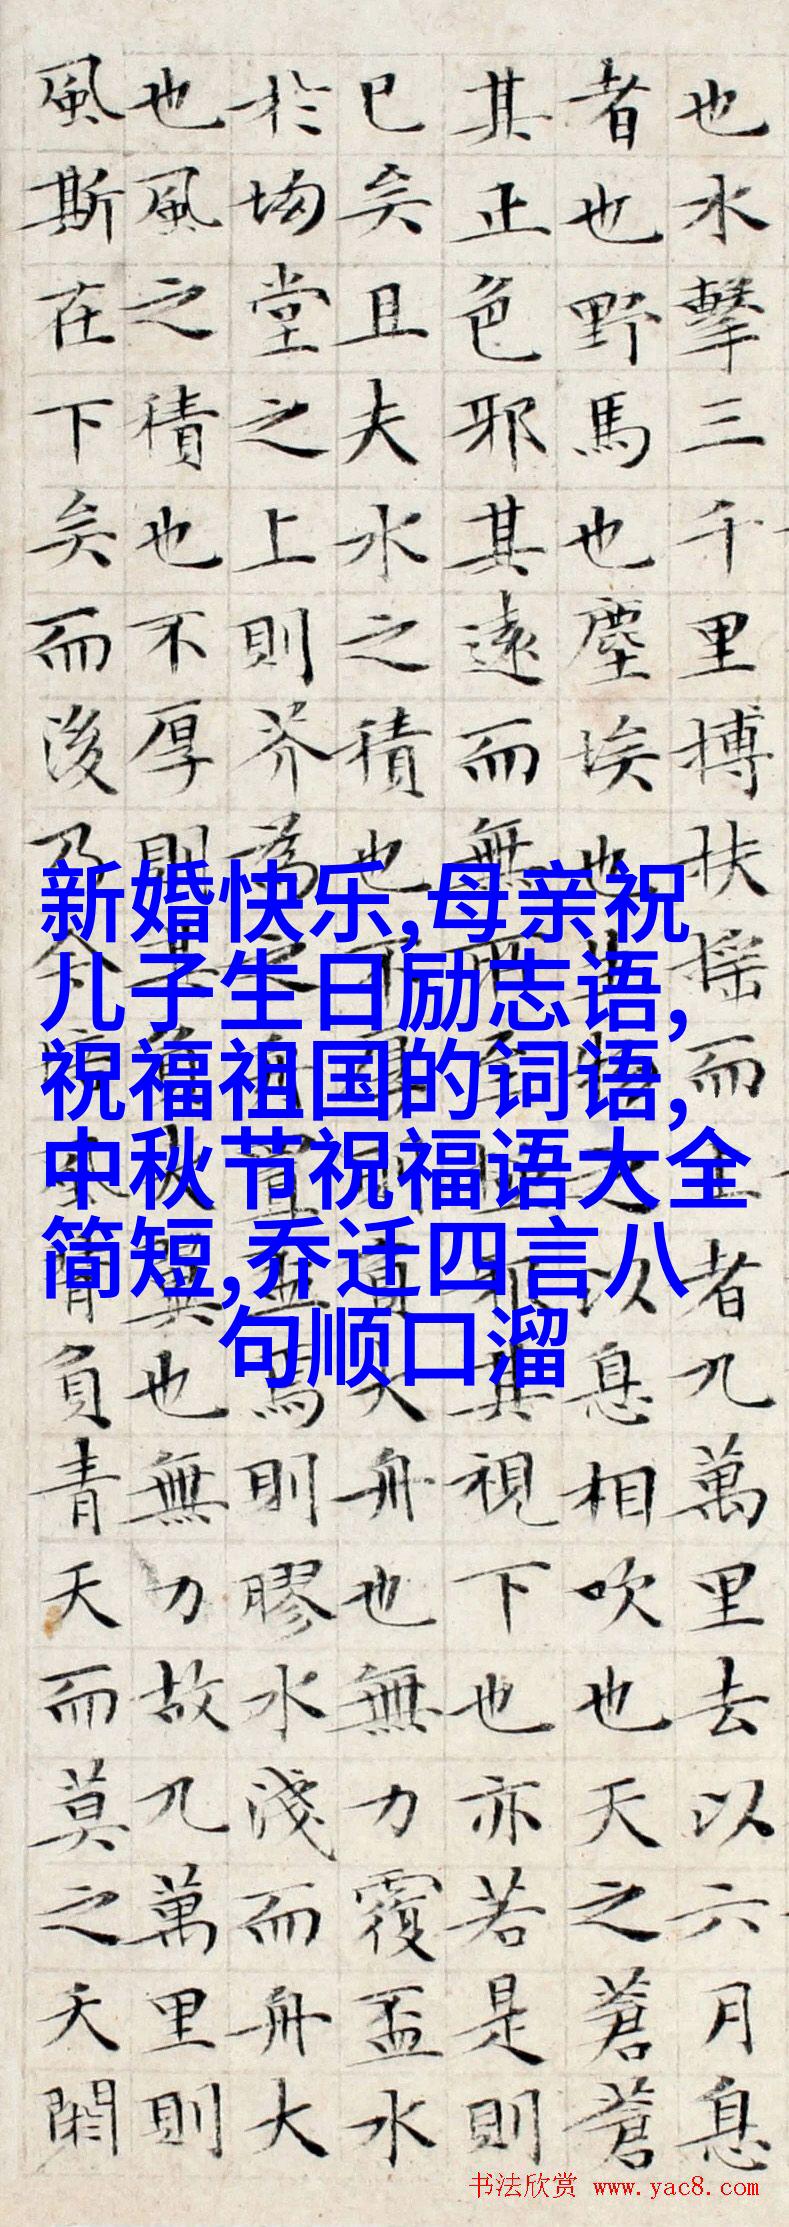 也水擊三千里搏扶搖而上者九萬里去以六月息
者也野馬也塵埃也生物之以息相吹也天之蒼蒼
其正色邪其遠而無所至極邪其視下也亦若是則
已矣且夫水之積也不厚則負大舟也無力覆盃水
於坳堂之上則芥為之舟置盃焉則膠水淺而舟大
也風之積也不厚則其負大翼也無力故九萬里則
風斯在下矣而後乃今培風背負青天而莫之夭閼
新婚快乐,母亲祝
儿子生日励志语,
祝福祖国的词语,
中秋节祝福语大全
简短,乔迁四言八
句顺口溜
书法欣赏 www.yac8.com